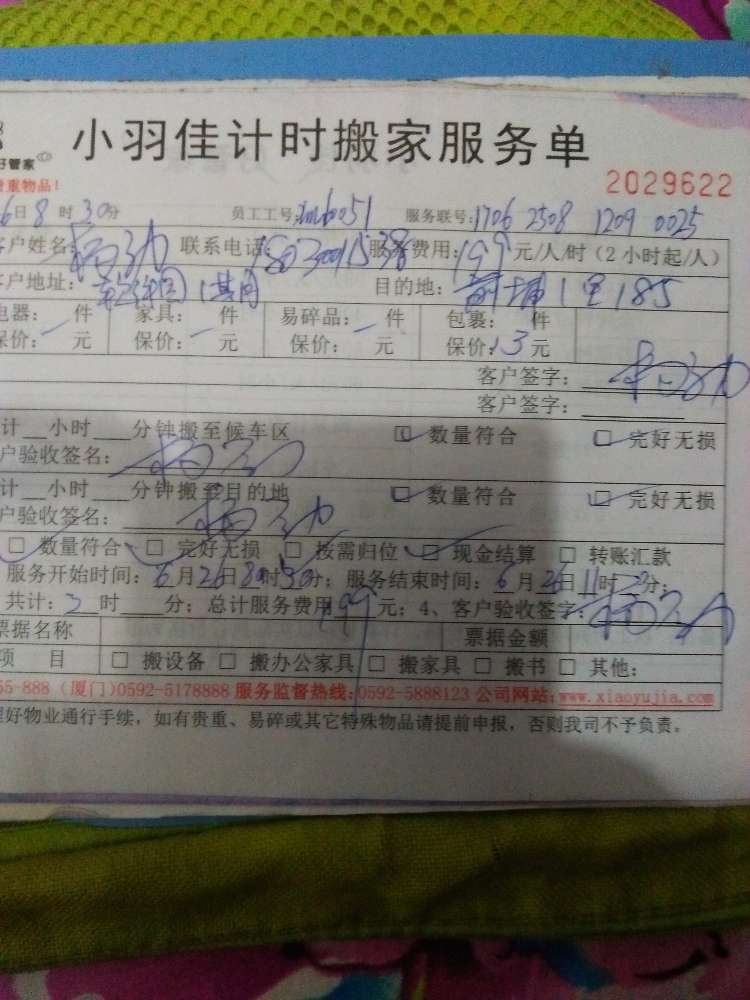 小羽佳计时搬家服务单
好管家
贵重物品!
2029622
6日8时30分 员工工号: 服务联号:1706 2508 1209 0025
客户姓名 联系电话 服务费用:199元/人/时(2小时起/人)
客户地址: 目的地:
电器: 一 件 家具: 件 易碎品: 件 包裹: 件
保价: 元 保价: 一 元 保价: 一 元 保价:13元
客户签字:
客户签字:
计__小时___分钟搬至候车区 ☑ 数量符合 ☑ 完好无损
户验收签名:
计__小时___分钟搬至目的地 ☑ 数量符合 ☑ 完好无损
户验收签名:
☑ 数量符合 ☑ 完好无损 □ 按需归位 ☑ 现金结算 □ 转账汇款
服务开始时间:6月26日8时30分;服务结束时间:6月26日11时 分;
共计:2时 分;总计服务费用199元;4、客户验收签字:
票据名称 票据金额
项 目 □ 搬设备 □ 搬办公家具 □ 搬家具 □ 搬书 □ 其他:
55-888(厦门)0592-5178888 服务监督热线:0592-5888123 公司网站:www.xiaoyujia.com
理好物业通行手续,如有贵重、易碎或其它特殊物品请提前申报,否则我司不予负责。